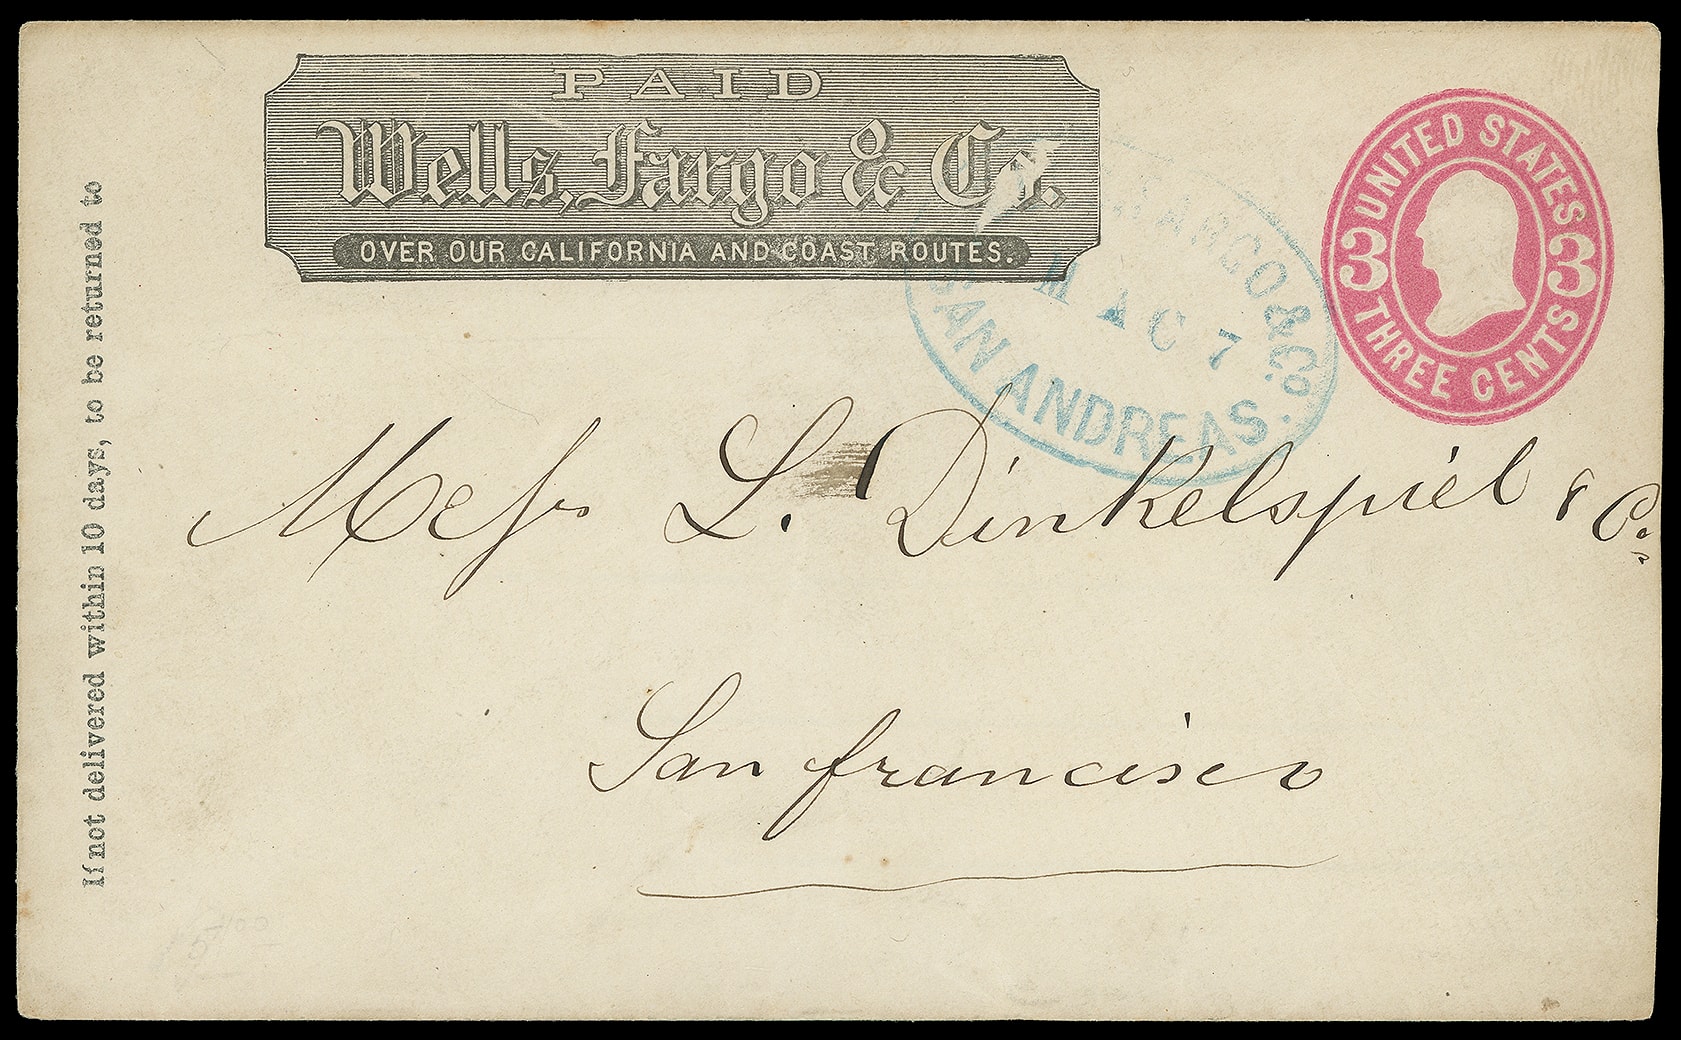 PAID
Wells, Fargo & Co.
OVER OUR CALIFORNIA AND COAST ROUTES.
UNITED STATES
3 3
THREE CENTS
FARGO & CO.
7
SAN ANDREAS.
If not delivered within 10 days, to be returned to
Messrs L. Dinkelspiel & Co.
San Francisco